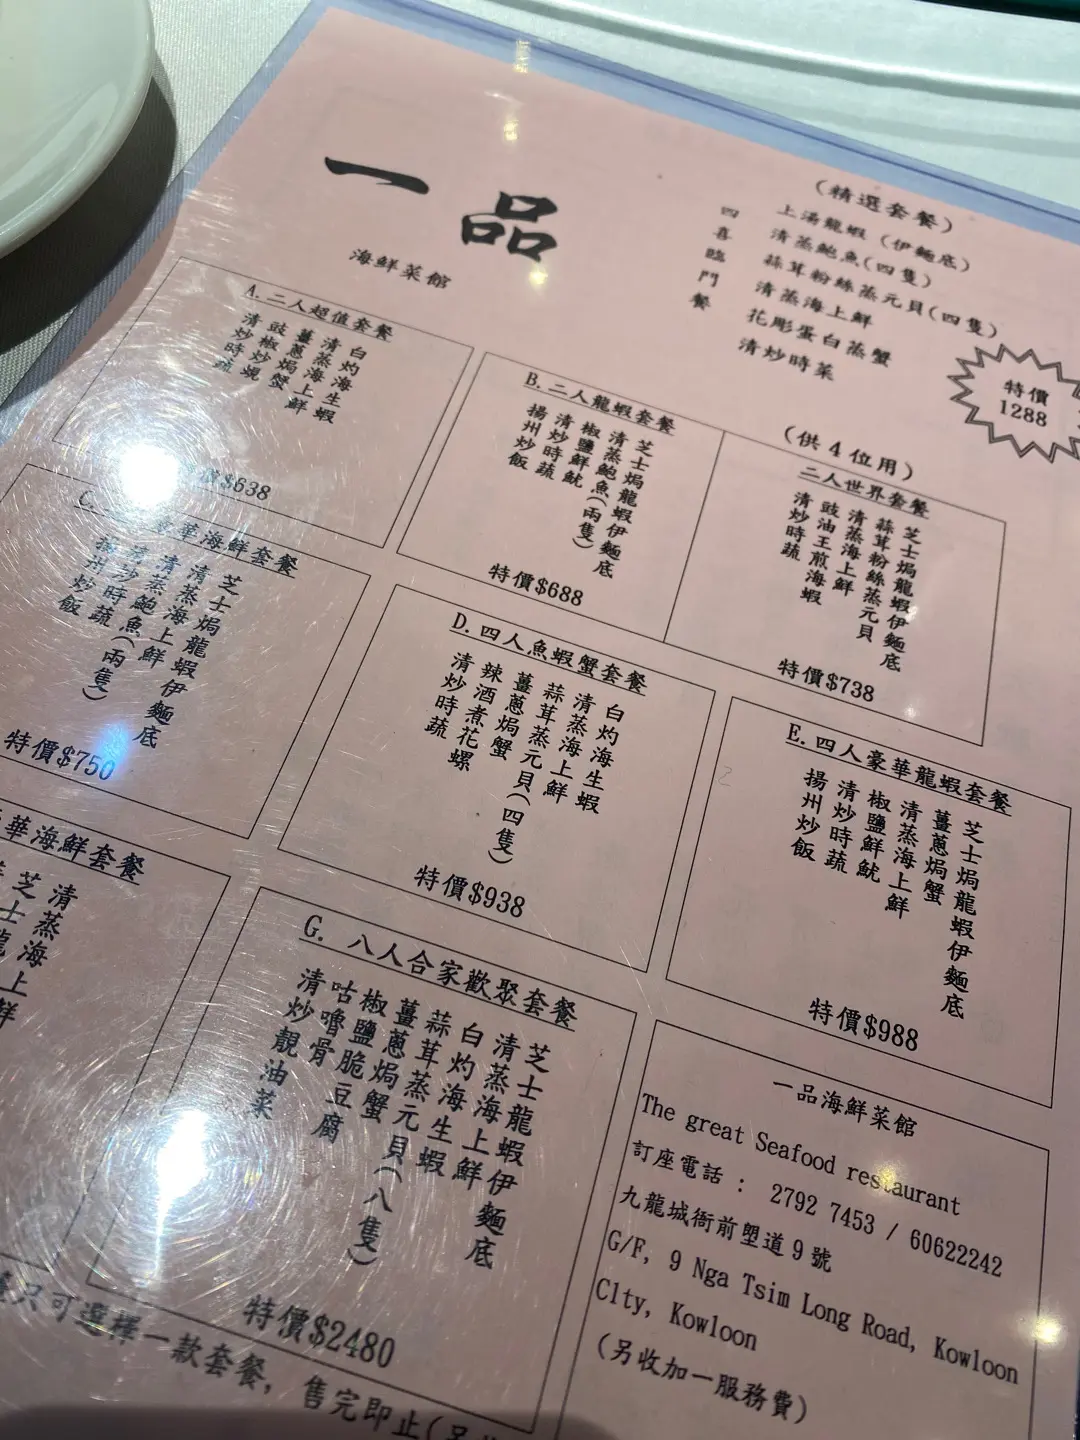 一品
海鮮菜館
(精選套餐)
四喜臨門餐
上湯龍蝦 (伊麵底)
清蒸鮑魚(四隻)
蒜茸粉絲蒸元貝(四隻)
清蒸海上鮮
花彫蛋白蒸蟹
清炒時菜
特價
1288
(供 4 位用)
A.二人超值套餐
白灼海生蝦
清蒸海上鮮
薑蔥焗蟹
豉椒炒蜆
清炒時蔬
$638
B.二人龍蝦套餐
芝士焗龍蝦伊麵底
清蒸鮑魚(兩隻)
椒鹽鮮魷
清炒時蔬
揚州炒飯
特價$688
二人世界套餐
芝士焗龍蝦伊麵底
蒜茸粉絲蒸元貝
清蒸海上鮮
豉油王煎海蝦
清炒時蔬
特價$738
華海鮮套餐
芝士焗龍蝦伊麵底
清蒸海上鮮
清蒸鮑魚(兩隻)
清炒時蔬
揚州炒飯
特價$750
D.四人魚蝦蟹套餐
白灼海生蝦
清蒸海上鮮
蒜茸蒸元貝(四隻)
薑蔥焗蟹
辣酒煮花螺
清炒時蔬
特價$938
E.四人豪華龍蝦套餐
芝士焗龍蝦伊麵底
薑蔥焗蟹
清蒸海上鮮
椒鹽鮮魷
清炒時蔬
揚州炒飯
特價$988
華海鮮套餐
清蒸海上鮮
芝士龍
G. 八人合家歡聚套餐
芝士龍蝦伊麵底
清蒸海上鮮
白灼海生蝦
蒜茸蒸元貝(八隻)
薑蔥焗蟹
椒鹽脆豆腐
咕嚕骨
清炒靚油菜
特價$2480
一品海鮮菜館
The great Seafood restaurant
訂座電話 : 2792 7453 / 60622242
九龍城衙前塱道 9 號
G/F, 9 Nga Tsim Long Road, Kowloon
CIty, Kowloon
(另收加一服務費)
只可選擇一款套餐, 售完即止(